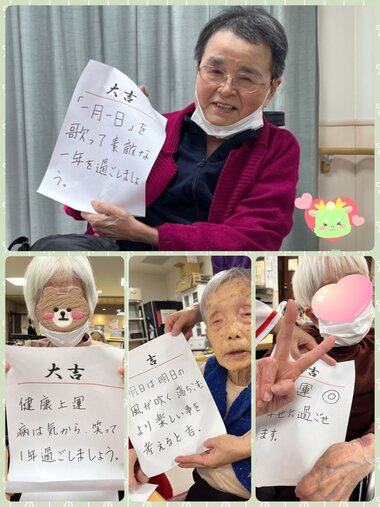 大吉
「一月一日」を
歌って素敵な
一年を過ごしましょ
う。
大吉
健康上運
病は気から、笑って
1年過ごしましょう。
吉
明日は明日の
風が吹く、落ちこむ
より楽しい事を
考えると吉。
吉
運 ◎
せに過ごせ
ます。